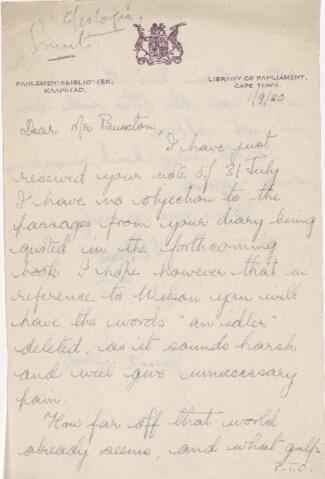 Smuts
PARLEMENTSBIBLIOTEEK,
KAAPSTAD.
LIBRARY OF PARLIAMENT,
CAPE TOWN.
1/9/30
Dear Mr Buxton,
I have just
received your note of 31 July
I have no objection to the
passages from your diary being
quoted in the forthcoming
book. I hope however that in
reference to Wilson you will
have the words "an idler"
deleted, as it sounds harsh
and will give unnecessary
pain.
How far off that world
already seems, and what gulfs
P.T.O.